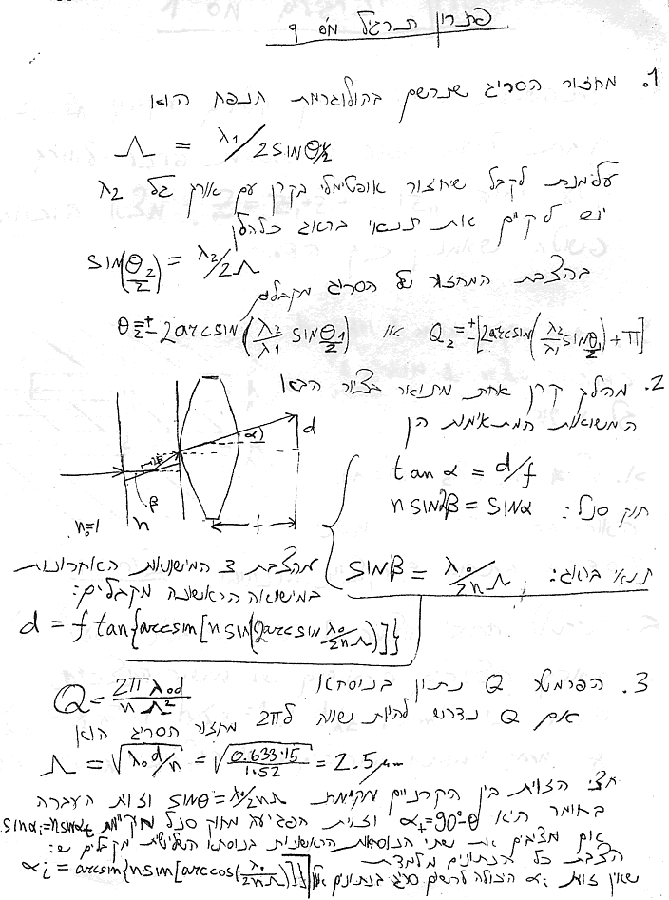 פתרון תרגיל מס 9
1. מחזור הסריג שנרשם בהולוגרמת הנפח הוא
Λ = λ₁/2 sin θ₁/2
על מנת לקבל שיחזור אופטימלי בקרן עם אורך גל λ₂
יש לקיים את תנאי בראג כלהלן
sin(θ₂/2) = λ₂/2Λ
בהצבת המחזור של הסריג מקבלים
θ₂ = ± 2arcsin(λ₂/λ₁ sin θ₁/2) או θ₂ = ±[2arcsin(λ₂/λ₁ sin θ₁/2) + π]
2. מהלך קרן אחת מתואר בציור הבא
המשוואות המתאימות הן
d
α
2β
β
n₁=1
n
f
tan α = d/f
חוק סנל: n sin2β = sinα
תנאי בראג: sinβ = λ₀/2nΛ
מהצבת 2 המישוואות האחרונות
במישוואה הראשונה מקבלים:
d = f tan{arcsin[n sin(2arcsin λ₀/2nΛ)]}
3. הפרמטר Q נתון בנוסחא
Q = 2πλ₀d/nΛ²
אם Q נדרש להיות שווה ל 2π מחזור הסריג הוא
Λ = √(λ₀d/n) = √(0.633·15/1.52) = 2.5μm
חצי הזוית בין הקרניים מקיימת sinθ = λ₀/2nΛ וזוית העברה
בחומר היא αₜ=90°-θ וזוית הפגיעה מחוק סנל מקיימת sinαᵢ=n sinαₜ
אם מציבים את שתי הנוסחאות הראשונות בנוסחא השלישית מקבלים ש:
αᵢ = arcsin{n sin[arccos(λ₀/2nΛ)]} הצבת כל הנתונים מלמדת
שאין זוית αᵢ היכולה לרשום סריג בנתונים